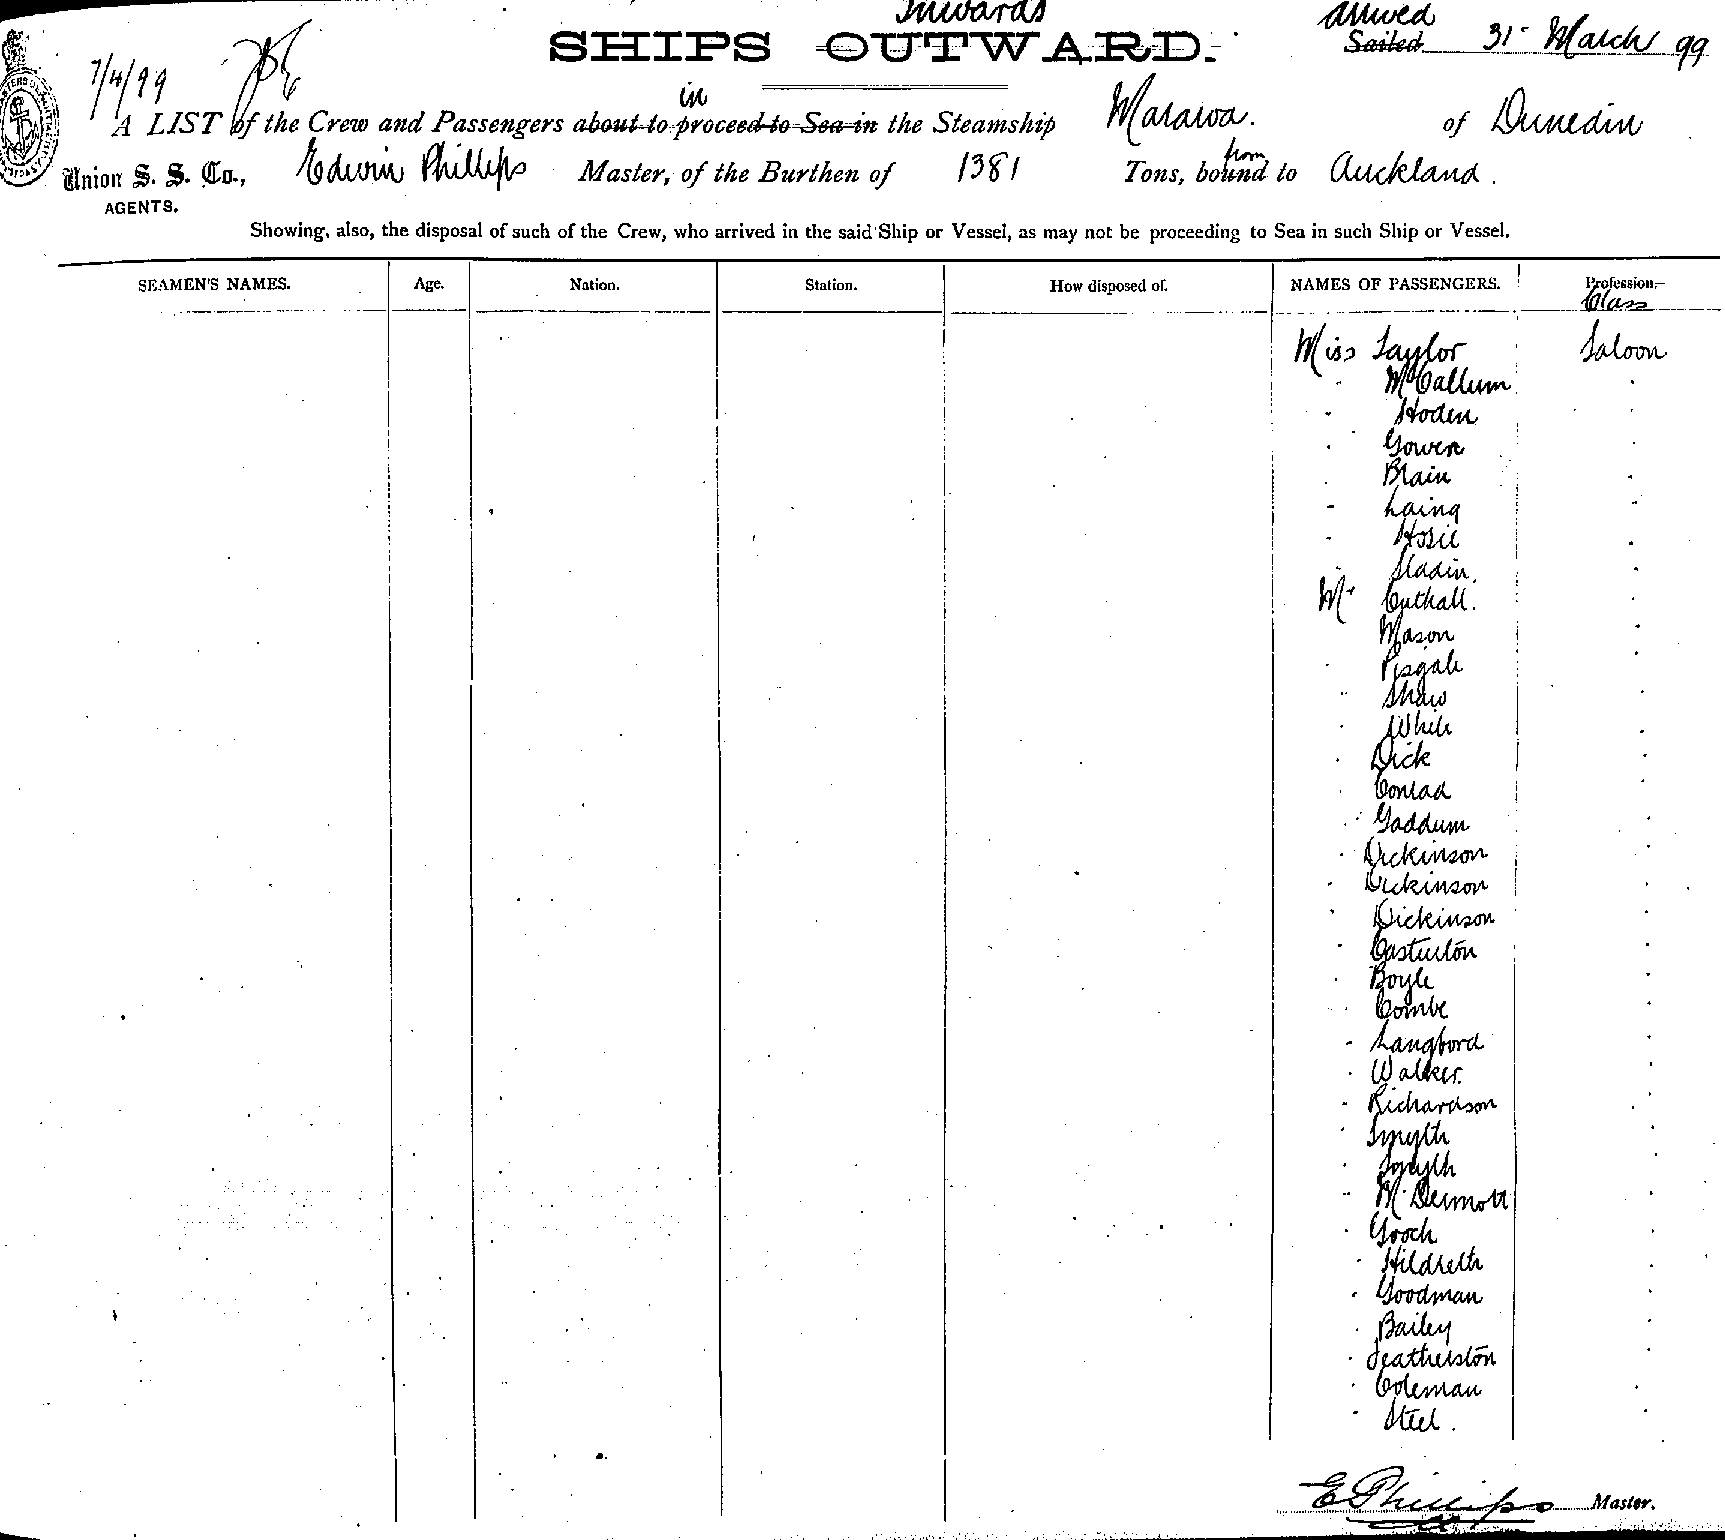 Inwards
SHIPS OUTWARD.
arrived
Sailed 31 March 99
7/4/99
in
A LIST of the Crew and Passengers about to proceed to Sea in the Steamship Mararoa. of Dunedin
from
Union S. S. Co., Edwin Phillips Master, of the Burthen of 1381 Tons, bound to Auckland.
AGENTS.
Showing, also, the disposal of such of the Crew, who arrived in the said Ship or Vessel, as may not be proceeding to Sea in such Ship or Vessel.
SEAMEN'S NAMES. Age. Nation. Station. How disposed of. NAMES OF PASSENGERS. Profession
Class
Miss Taylor Saloon
" McCallum "
" Hoden "
" Gowen "
" Brain "
" Laing "
" Hosie "
" Sladin. "
Mr Cuthall. "
Mason "
" Pisgah "
" Shaw "
" White "
" Dick "
" Conrad "
" Gaddum "
" Dickinson "
" Dickinson "
" Dickinson "
" Casterton "
" Boyle "
" Combe "
" Langford "
" Walker. "
" Richardson "
" Smyth "
" Smyth "
" McDermott "
" Gooch "
" Hildreth "
" Goodman "
" Bailey "
" Featherston "
" Coleman "
" Steel. "
E Phillips Master.